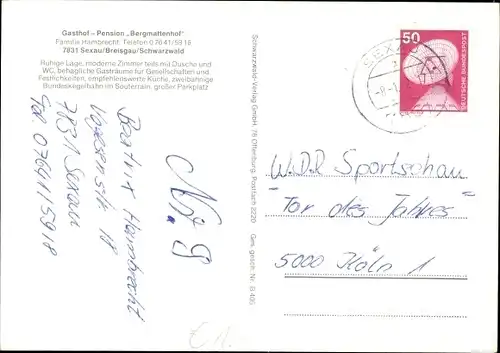 Gasthof - Pension „Bergmattenhof"
Familie Hambrecht · Telefon 0 76 41/59 18
7831 Sexau/Breisgau/Schwarzwald
Ruhige Lage, moderne Zimmer teils mit Dusche und
WC, behagliche Gasträume für Gesellschaften und
Festlichkeiten, empfehlenswerte Küche, zweibahnige
Bundeskegelbahn im Souterrain, großer Parkplatz
Beatrix Hambrecht
7831 Sexau
Tel 07641/5918
Nr. 9
Schwarzwald-Verlag GmbH, 76 Offenburg, Postfach 2220
Ges. gesch. Nr.
50
DEUTSCHE BUNDESPOST
SEXAU
W.D.R Sportschau
"Tor des Jahres"
5000 Köln 1